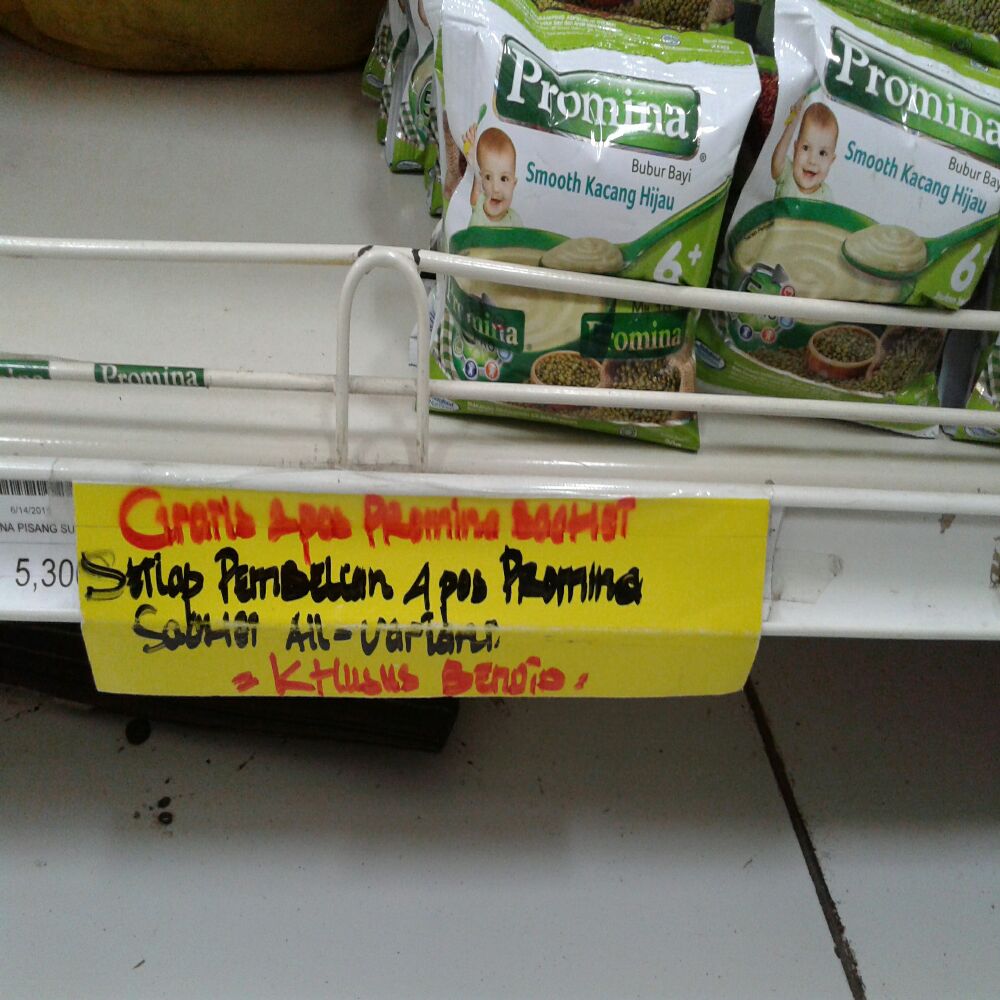 Promina
Bubur Bayi
Smooth Kacang Hijau
6+
Promina
Bubur Bay
Smooth Kacang Hijau
6
Promina
Promina
6/14/201
NA PISANG SU
5,30
Gratis 1 pcs Promina Sachet
Setiap Pembelian 4 pcs Promina
Sachet All-Varian
= Khusus Bendis.